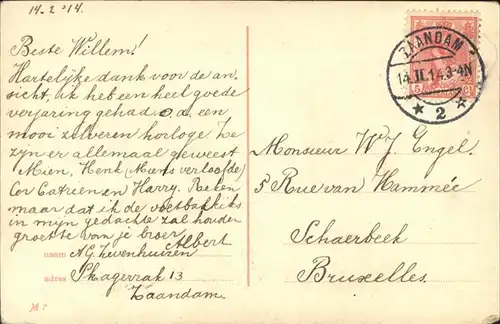 14-2-'14.
Beste Willem!
Hartelijke dank voor de an-
sicht, ik heb een heel goede
verjaring gehad o.a. een
mooi zilveren horloge. Ze
zijn er allemaal geweest
Mien, Henk (Miens verloofde)
Cor Catrien en Harry. Reken
maar dat ik de voetbalkiks
in mijn gedachte zal houden
groette van je broer
Albert
naam A.G. Zevenhuizen
adres Skagerrak 13
Zaandam
ZAANDAM
14.II.14.3-4N
2
5 Ct
Monsieur W J Engel.
5 Rue van Hammée
Schaerbeek
Bruxelles.